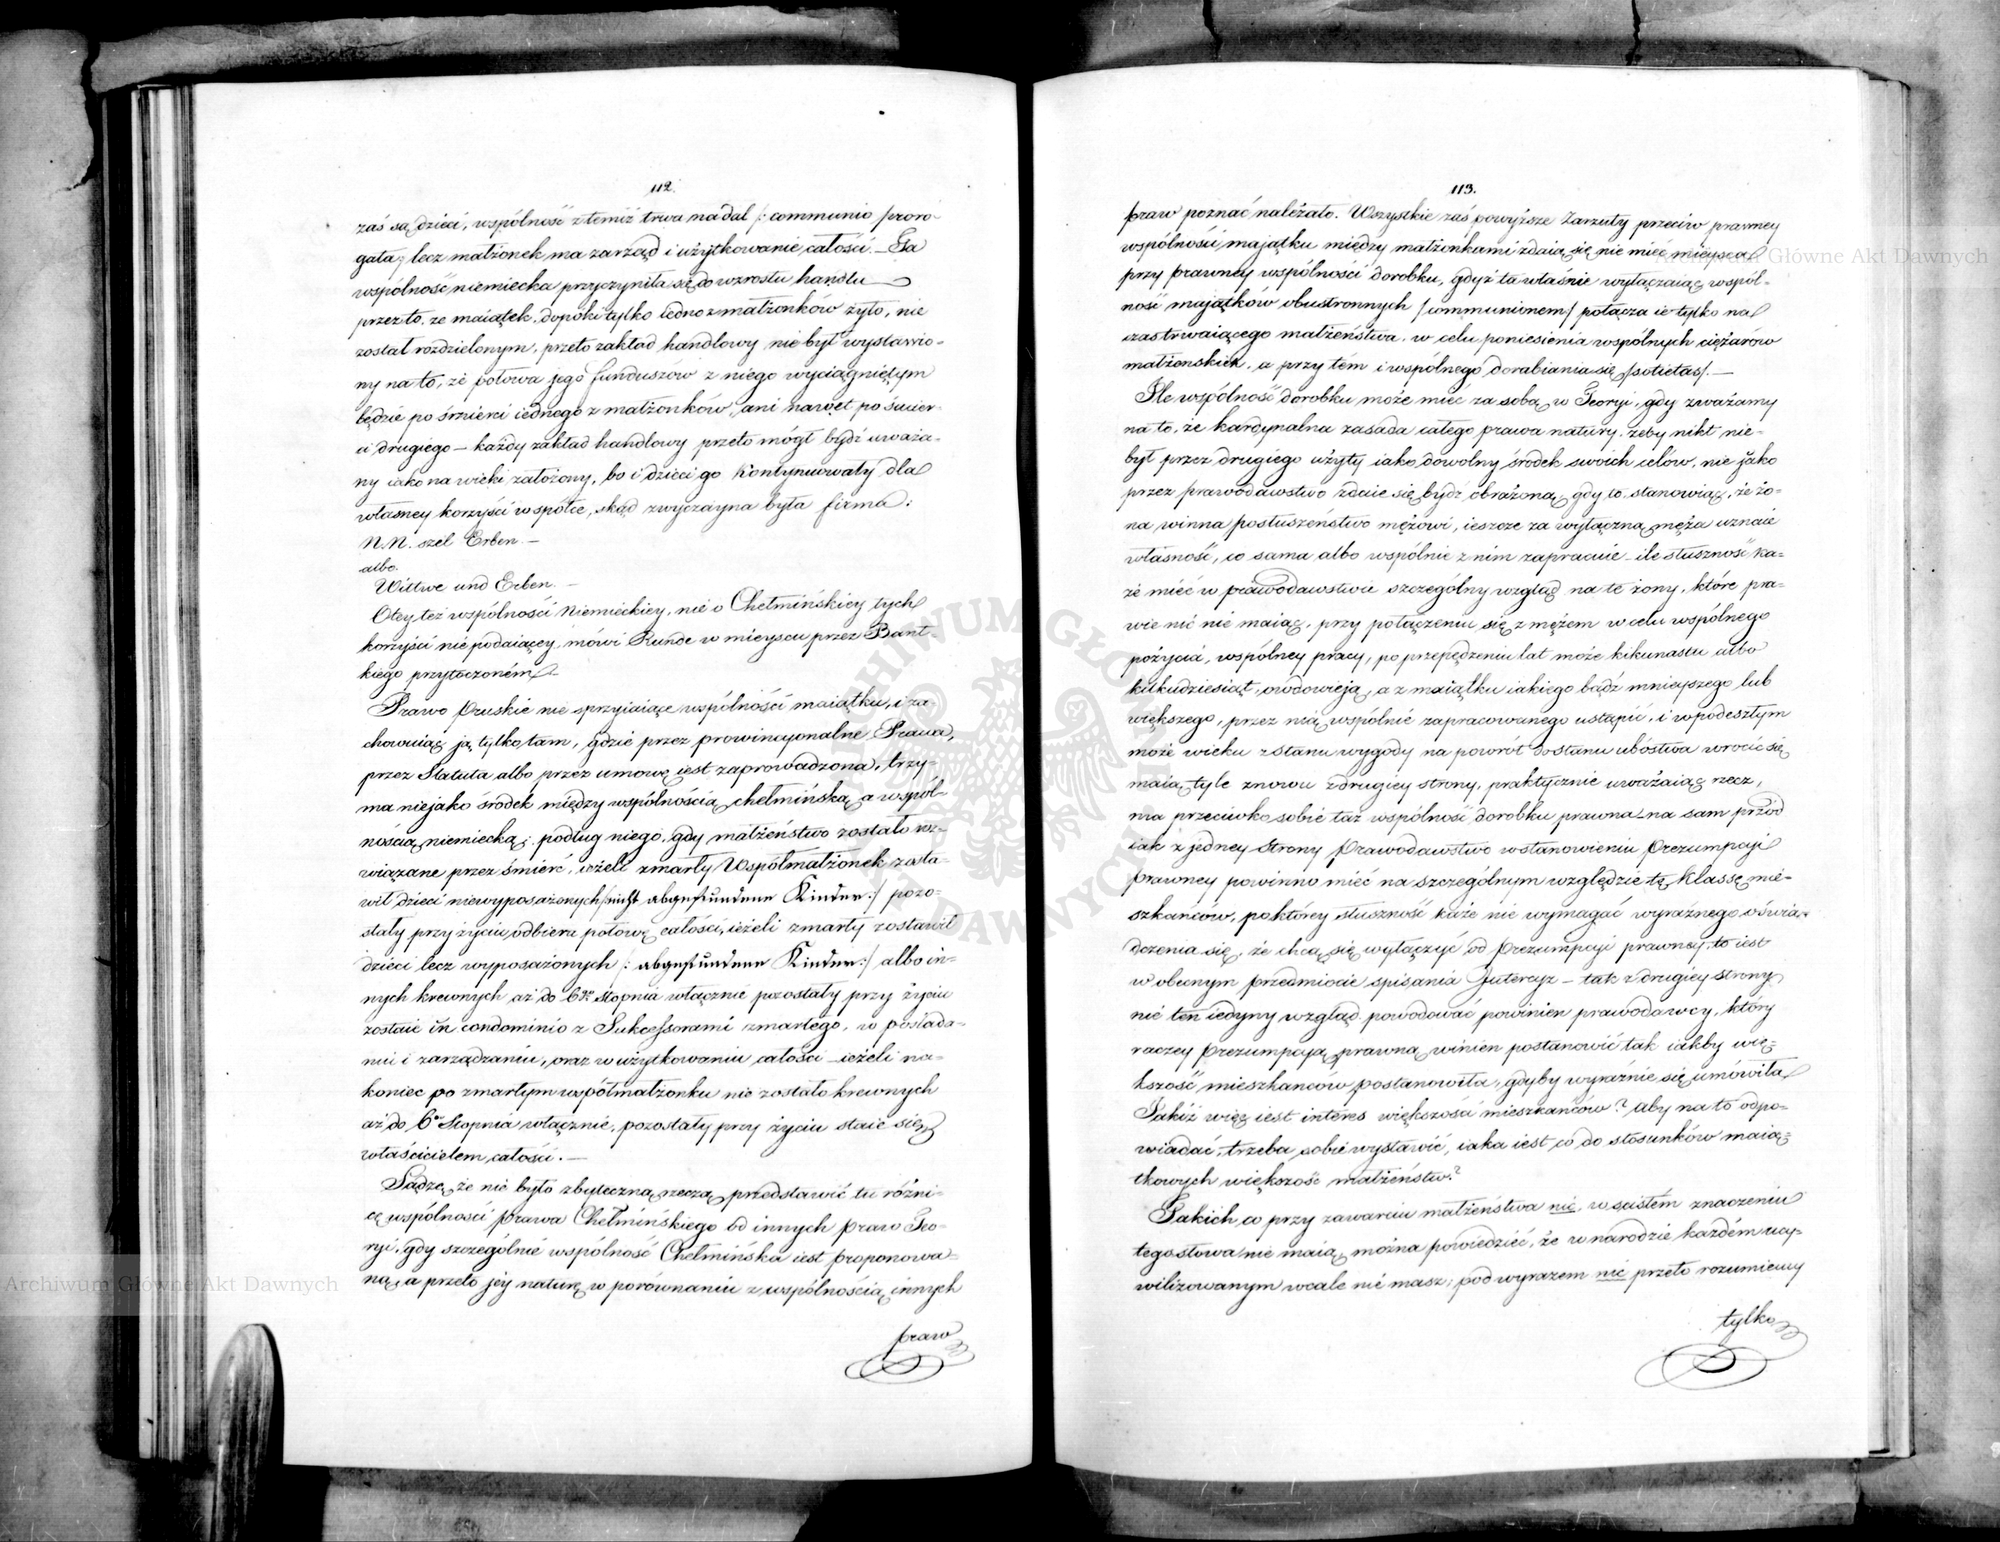 112.
zaś są dzieci, wspólność z temiż trwa nadal /: communio proro-
gata; lecz małżonek ma zarząd i użytkowanie całości. — Ta
wspólność niemiecka przyczyniła się do wzrostu handlu
przez to, że maiątek, dopóki tylko iedno z małżonków żyło, nie
został rozdzielonym, przeto zakład handlowy nie był wystawio-
ny na to, że połowa jego funduszow z niego wyciągniętym
będzie po śmierci iednego z małżonków, ani nawet po śmier-
ci drugiego — każdy zakład handlowy przeto mógł bydź uważa-
ny iako na wieki założony, bo i dzieci go kontynuowały dla
własney korzyści w spółce, skąd zwyczayna była firma:
N.N. seel Erben. —
albo.
Wittwe und Erben. —
O tey też wspólności Niemieckiey, nie o Chełmińskiey tych
korzyści nie podaiącey, mówi Runde w mieyscu przez Bant-
kiego przytoczoném.
Prawo pruskie nie sprzyiaiące wspólności maiątku, i za-
chowuiąc ją tylko tam, gdzie przez prowincyonalne Prawa,
przez Statuta albo przez umowę iest zaprowadzona, trzy-
ma niejako środek między wspólnością chełmińską a wspól-
nością niemiecką; podług niego, gdy małżeństwo zostało roz-
wiązane przez śmierć, ieżeli zmarły Współmałżonek zosta-
wił dzieci niewyposażonych /: nicht abgefundene Kinder :/ pozo-
stały przy życiu odbiera połowę całości, ieżeli zmarły zostawił
dzieci lecz wyposażonych /: abgefundene Kinder :/ albo in-
nych krewnych aż do 6go stopnia włącznie pozostały przy życiu
zostaie in condominio z Sukcessorami zmarłego, w posiada-
niu i zarządzaniu, oraz w użytkowaniu całości — ieżeli na-
koniec po zmarłym współmałżonku nie zostało krewnych
aż do 6o Stopnia włącznie, pozostały przy życiu staie się
właścicielem całości. —
Sądzę, że nie było zbyteczną rzeczą przedstawić tu różni-
cę wspólności prawa Chełmińskiego od innych praw Teo-
ryi, gdy szczególnie wspólność Chełmińska iest proponowa-
ną, a przeto jey naturę w porównaniu z wspólnością innych
praw
113.
praw poznać należało. Wszystkie zaś powyższe Zarzuty przeciw prawney
wspólności majątku między małżonkami zdaią się nie mieć mieysca
przy prawney wspólności dorobku, gdyż ta właśnie wyłączaiąc wspól-
ność majątków obustronnych /communionem/ połącza ie tylko na
czas trwaiącego małżeństwa, w celu poniesienia wspólnych ciężarów
małżenskich, a przy tém i wspólnego dorabiania się /societas/. —
Ile wspólność dorobku może mieć za sobą w Teoryi, gdy zważamy
na to, że kardynalna zasada całego prawa natury, żeby nikt nie-
był przez drugiego użyty iako dowolny środek swoich celów, nie jako
przez prawodawstwo zdaie się bydź obrażoną, gdy to stanowiąc, że żo-
na winna posłuszeństwo mężowi, ieszcze za wyłączną męża uznaie
własność, co sama albo wspólnie z nim zapracuie — ile słuszność ka-
że mieć w prawodawstwie szczególny wzgląd na te żony, które pra-
wie nic nie maiąc, przy połączeniu się z mężem w celu wspólnego
pożycia, wspólney pracy, po przepędzeniu lat może kilkunastu albo
kilkudziesiąt, owdowieją, a z maiątku iakiego bądź mnieyszego lub
większego, przez nią wspólnie zapracowanego ustąpić, i w podeszłym
może wieku z stanu wygody na powrót do stanu ubóstwa wrócić się
maią, tyle znowu z drugiey strony, praktycznie uważaiąc rzecz,
ma przeciwko sobie taż wspólność dorobku prawna, na sam przód
iak z jedney strony prawodawstwo w stanowieniu prezumpcyi
prawney powinno mieć na szczególnym względzie tę klassę mie-
szkańców, po którey słuszność każe nie wymagać wyraźnego oświa-
dczenia się, że chcą się wyłączyć od prezumpcyi prawney, to iest
w obecnym przedmiocie spisania Intercyz — tak z drugiey strony
nie ten iedyny wzgląd powodować powinien prawodawcy, który
raczey prezumpcyą prawną winien postanowić tak iakby wię-
kszość mieszkanców postanowiła, gdyby wyraźnie się umówiła
Jakiż więc iest interes większości mieszkańców? Aby na to odpo-
wiadać, trzeba sobie wystawić, iaka iest co do stosunków maią-
tkowych większość małżeństw?
Takich co przy zawarciu małżeństwa nic, w ścisłém znaczeniu
tego słowa nie maią, można powiedzieć, że w narodzie każdém ucy-
wilizowanym wcale nie masz; pod wyrazem nic przeto rozumiemy
tylko